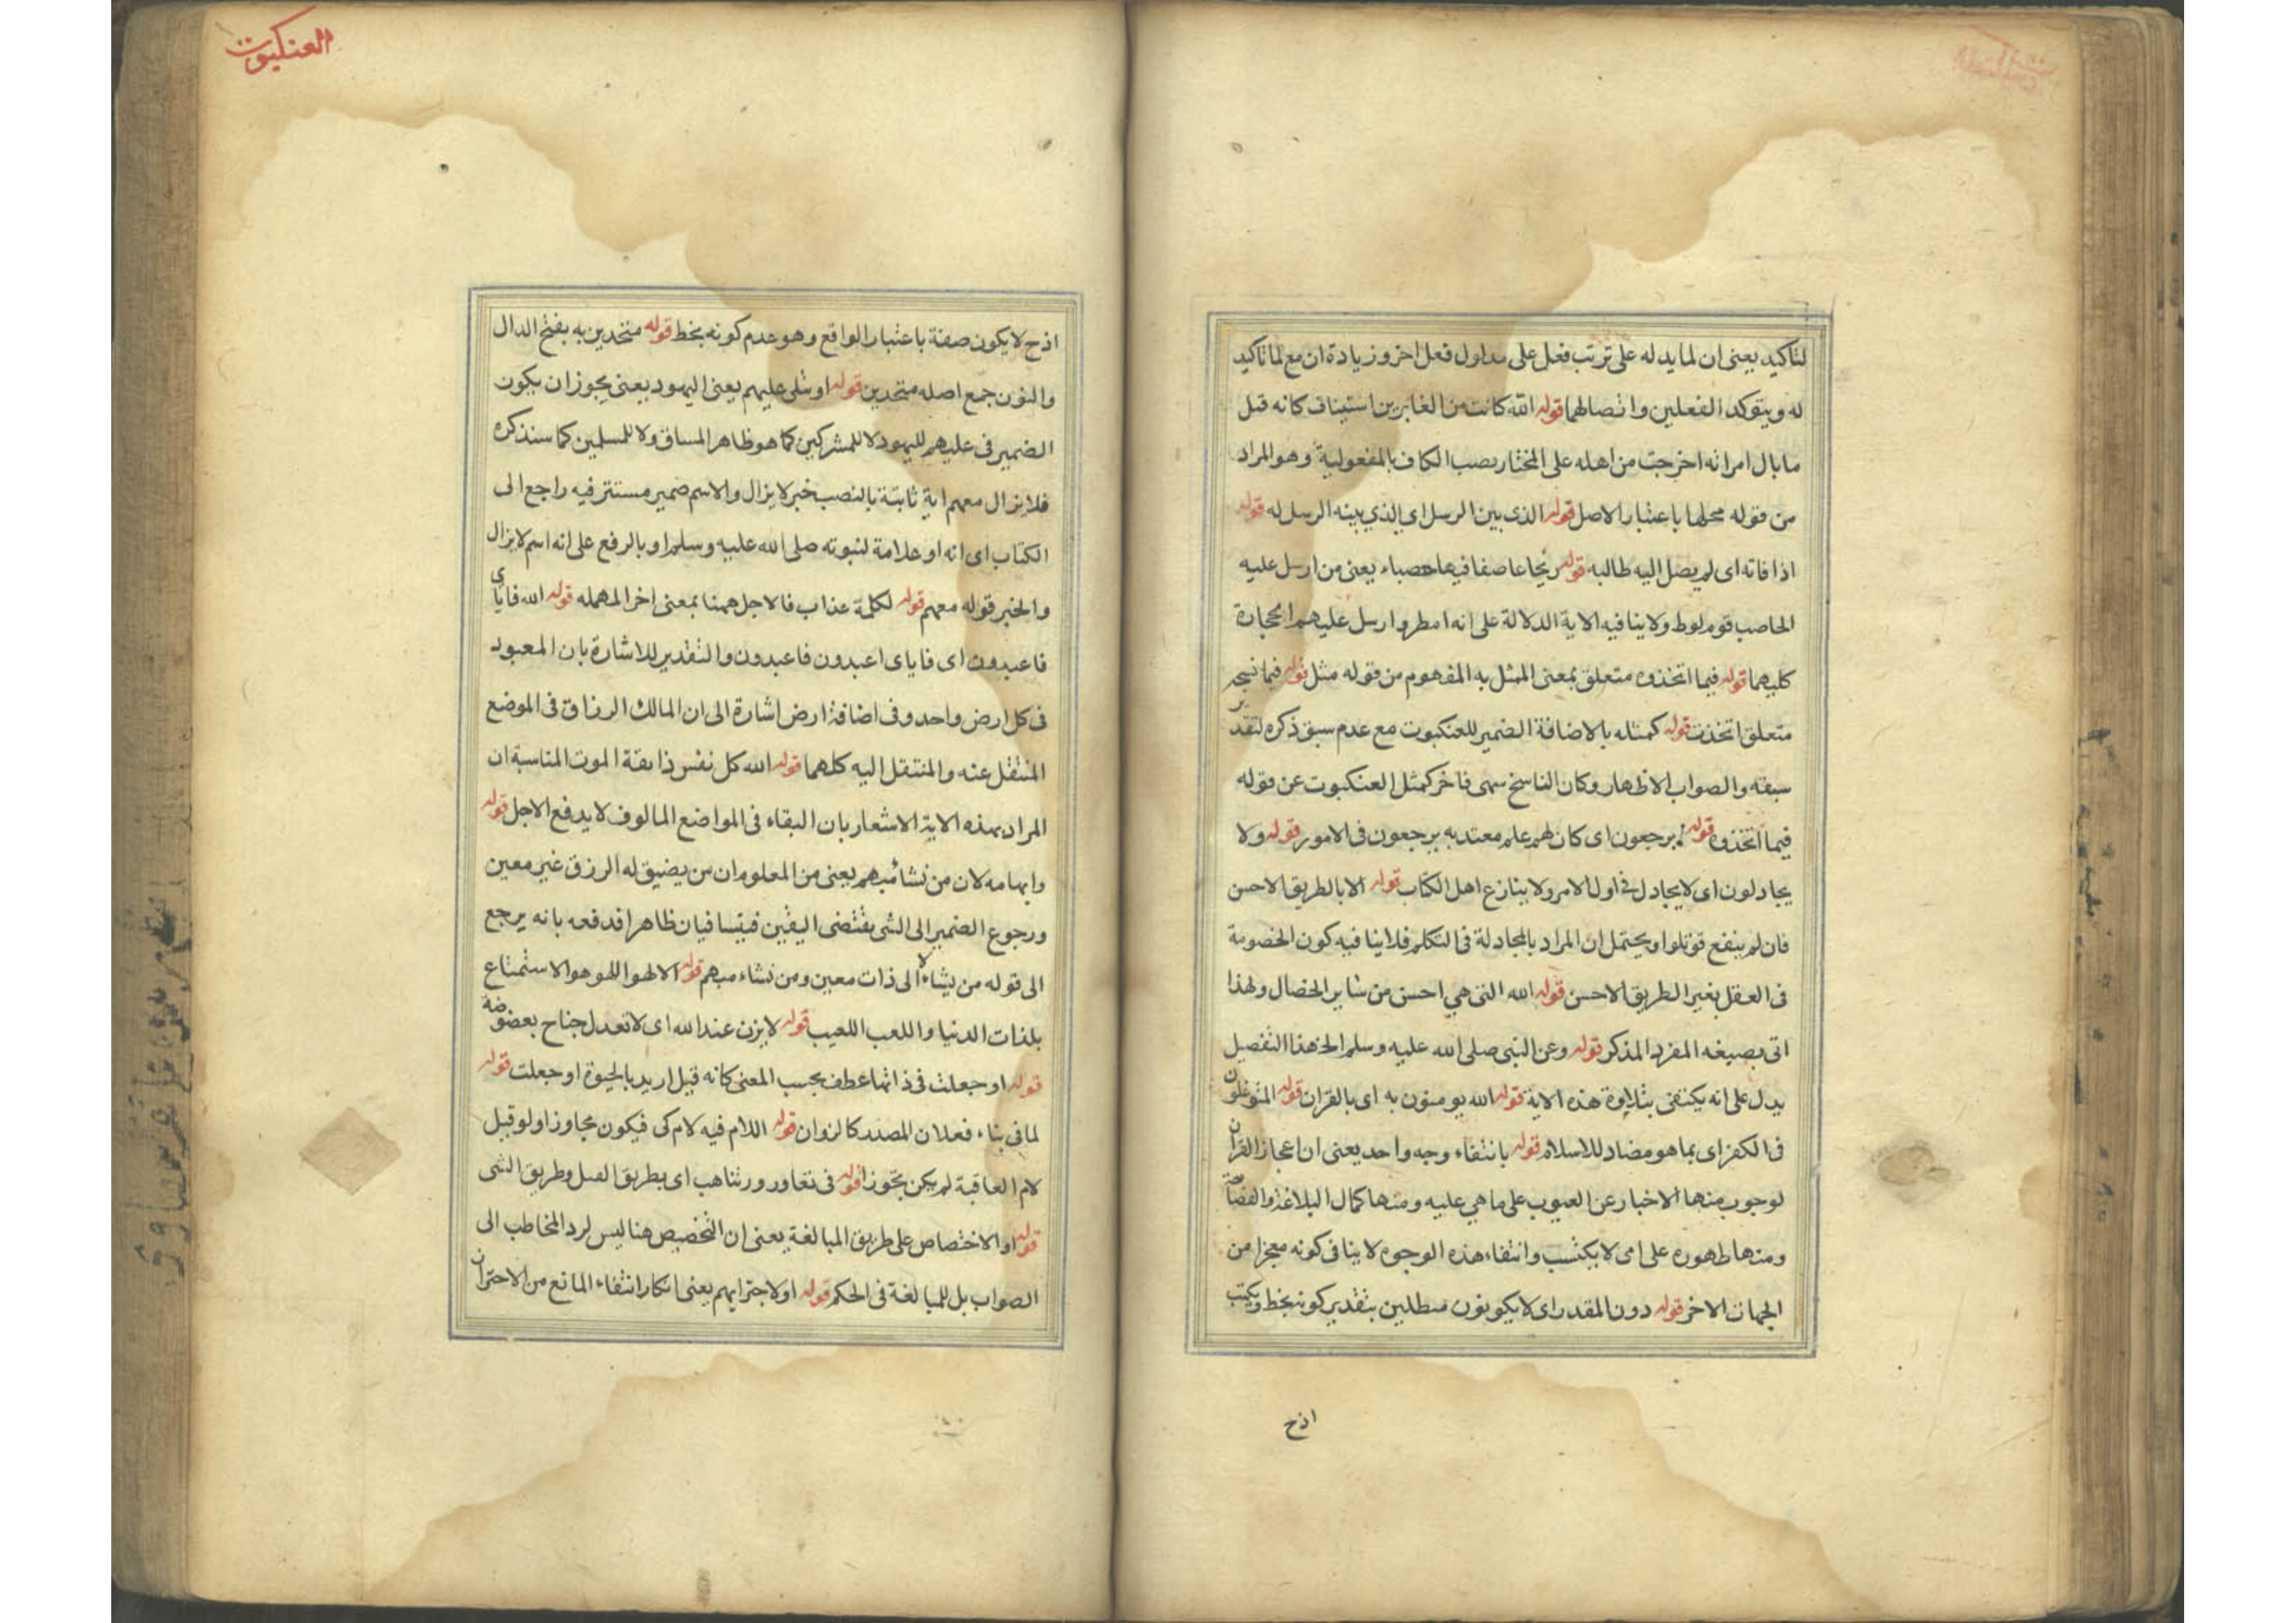 لتاكيد يعنى ان لما يدله على ترتب فعل على مدلول فعل اخر وزيادة ان مع لما تاكيد
له ويتوكد الفعلين واتصالهما قوله الله كانت من الغابرين استيناف كانه قيل
ما بال امراته اخرجت من اهله على المختار بصب الكاف بالمفعولية وهو المراد
من قوله محلها باعتبار الاصل قوله الذى بين الرسل اى الذي بينه الرسل له قوله
اذا فاته اى لم يصل اليه طالبه قوله ريحا عاصفا فيها حصباء يعنى من ارسل عليه
الحاصب قوم لوط ولا ينافيه الاية الدلالة على انه امطر وارسل عليهم الحجارة
كليهما قوله فيما اتخذوه متعلق بمعنى المثل به المفهوم من قوله مثل قوله فيما نسجه
متعلق اتخذت قوله كمثله بالاضافة الضمير للعنكبوت مع عدم سبق ذكره لتقدير
سبقه والصواب الاظهار وكان الناسخ سهى فاخر كمثل العنكبوت عن قوله
فيما اتخذوه قوله يرجعون اى كان لهم علم معتد به يرجعون فى الامور قوله ولا
يجادلون اى لا يجادل فى اول الامر ولا ينازع اهل الكتاب قوله الا بالطريق الاحسن
فان لم ينفع قوتلوا ويحتمل ان المراد بالمجادلة فى التكلم فلا ينافيه كون الخصومة
فى العقل بغير الطريق الاحسن قوله الله التى هي احسن من ساير الخصال ولهذا
اتى بصيغه المفرد المذكر قوله وعن النبى صلى الله عليه وسلم الخ هذا التفصيل
يدل على انه يكتفى بتلاوة هذه الاية قوله الله يومنون به اى بالقران قوله المتوغلون
فى الكفر اى بما هو مضاد للاسلام قوله بانتفاء وجه واحد يعنى ان اعجاز القران
لوجوه منها الاخبار عن الغيوب على ما هي عليه ومنها كمال البلاغة والفصاحة
ومنها ظهوره على امى لا يكتسب وانتفاء هذه الوجوه لا ينافى كونه معجزا من
الجهات الاخر قوله دون المقدر اى لا يكونون مبطلين بتقدير كونه يخط ويكتب
اذح
العنكبوت
اذح لا يكون صفة باعتبار الواقع وهو عدم كونه يخط قوله متحدين به بفتح الدال
والنون جمع اصله متحديين قوله او تتلى عليهم يعنى اليهود يعنى يجوز ان يكون
الضمير فى عليهم لليهود لا للمشركين كما هو ظاهر المساق ولا للمسلمين كما سنذكره
فلا يزال معهم اية ثابتة بالنصب خبر لا يزال والاسم ضمير مستتر فيه راجع الى
الكتاب اى انه او علامة لنبوته صلى الله عليه وسلم او بالرفع على انه اسم لا يزال
والخبر قوله معهم قوله لكلمة عذاب فالاجل ههنا بمعنى اخر المهمله قوله الله فاياى
فاعبدون اى فاياى اعبدون فاعبدون والتقدير للاشارة بان المعبود
فى كل ارض واحد وفى اضافة ارض اشارة الى ان المالك الرزاق فى الموضع
المنتقل عنه والمنتقل اليه كلهما قوله الله كل نفس ذايقة الموت المناسبة ان
المراد بهذه الاية الاشعار بان البقاء فى المواضع المالوف لا يدفع الاجل قوله
وابهامه لان من نشاء مبهم يعنى من المعلوم ان من يضيق له الرزق غير معين
ورجوع الضمير الى الشى يقتضى اليقين فيتنافيان ظاهرا فدفعه بانه يرجع
الى قوله من يشاء لا الى ذات معين ومن نشاء مبهم قوله الا لهو اللهو هو الاستمتاع
بلذات الدنيا واللعب اللعيب قوله لا يزن عند الله اى لا تعدل جناح بعضوضة
قوله او جعلت فى ذاتها عطف بحسب المعنى كانه قيل اريد بالحيوة او جعلت قوله
لما فى بناء فعلان المصدر كالنزوان قوله اللام فيه لام كى فيكون مجاوزا ولو قيل
لام العاقبة لم يكن تجوزا قوله فى تغاور وتناهب اى بطريق القتل وطريق الشى
قوله او الاختصاص على طريق المبالغة يعنى ان التخصيص هنا ليس لرد المخاطب الى
الصواب بل للمبالغة فى الحكم قوله او لاجترايهم يعنى انكار انتفاء المانع من الاحتران